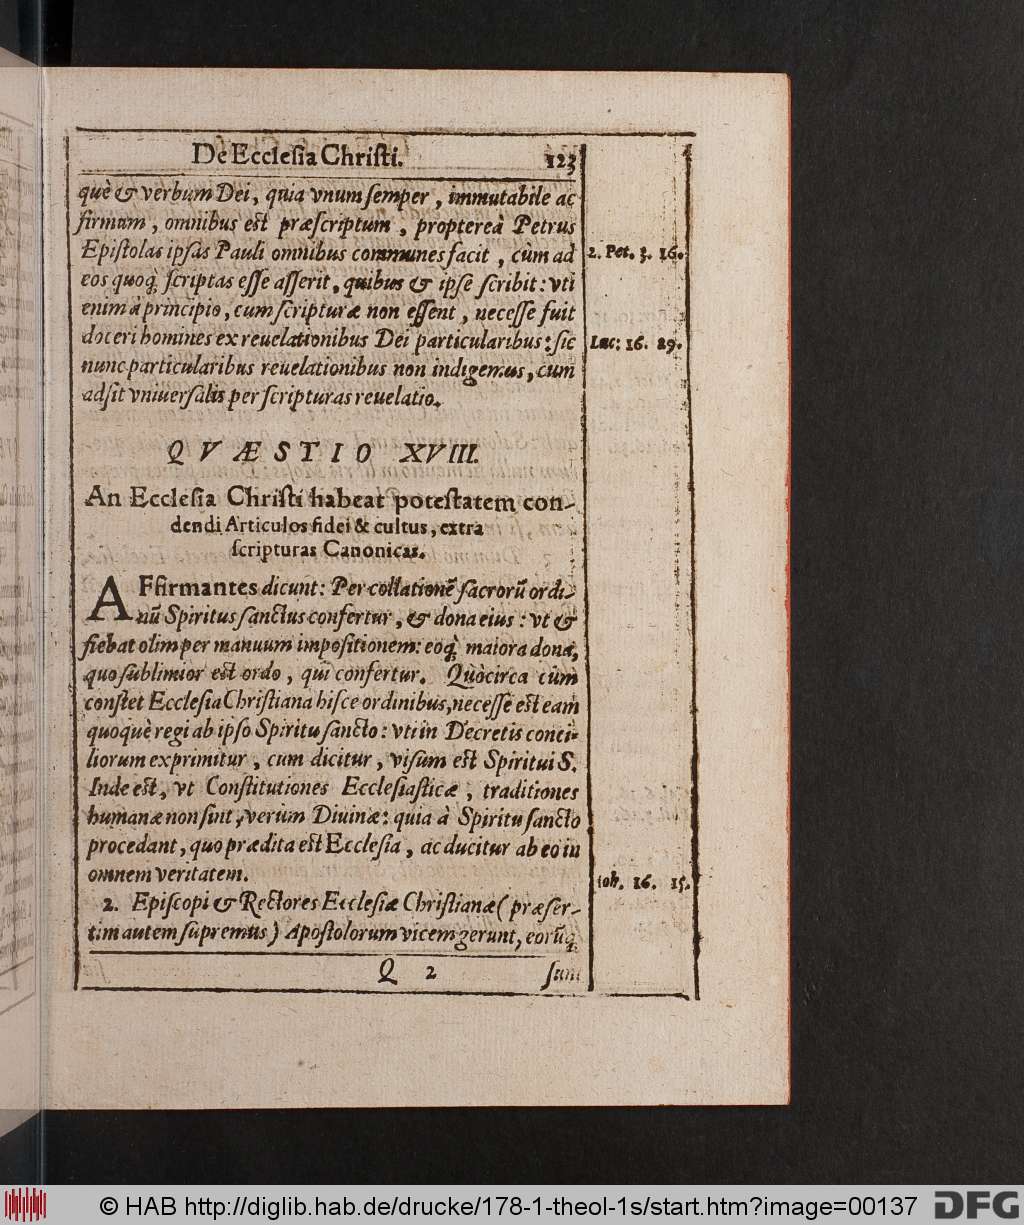 De Ecclesia Christi. 123
què & verbum Dei, quia vnum semper, immutabile ac
firmum, omnibus est præscriptum, proptereà Petrus
Epistolas ipsas Pauli omnibus communes facit, cùm ad
2. Pet. 3. 16.
eos quoq; scriptas esse asserit, quibus & ipse scribit: vti
enim à principio, cum scripturæ non essent, necesse fuit
doceri homines ex reuelationibus Dei particularibus: sic
Luc: 16. 29.
nunc particularibus reuelationibus non indigemus, cum
adsit vniuersalis per scripturas reuelatio.
QVÆSTIO XVIII.
An Ecclesia Christi habeat potestatem con-
dendi Articulos fidei & cultus, extra
scripturas Canonicas.
AFfirmantes dicunt: Per collationē sacrorū ordi-
nū Spiritus sanctus confertur, & dona eius: vt &
fiebat olim per manuum impositionem: eoq; maiora dona,
quo sublimior est ordo, qui confertur. Quòcirca cùm
constet Ecclesia Christiana hisce ordinibus, necesse est eam
quoquè regi ab ipso Spiritu sancto: vti in Decretis conci-
liorum exprimitur, cum dicitur, visum est Spiritui S.
Inde est, vt Constitutiones Ecclesiasticæ, traditiones
humanæ non sint, verùm Diuinæ: quia à Spiritu sancto
procedant, quo prædita est Ecclesia, ac ducitur ab eo in
omnem veritatem.
ioh. 16. 15.
2. Episcopi & Rectores Ecclesiæ Christianæ (præser-
tim autem supremus) Apostolorum vicem gerunt, eorūq;
Q 2 sunt
© HAB http://diglib.hab.de/drucke/178-1-theol-1s/start.htm?image=00137 DFG